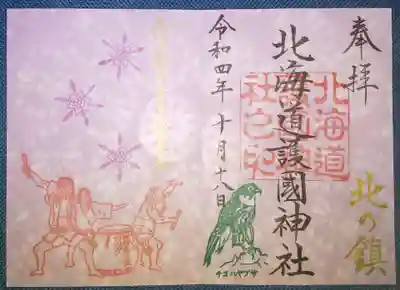 奉拝
北の鎮
北海道護國神社
北海道
護國神
社之印
令和四年十月十八日
チゴハヤブサ